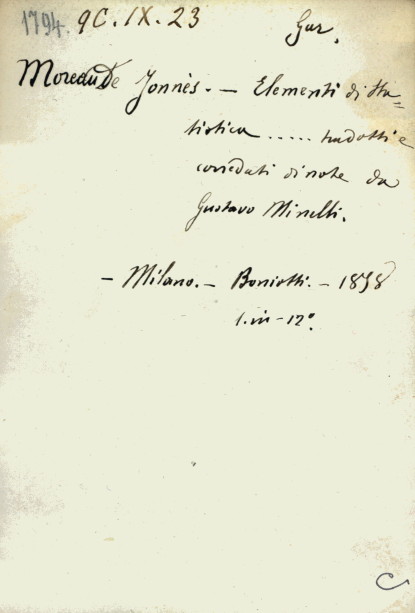 1794. 9C. IX. 23 Gur.
Moreau De Jonnès. — Elementi di Sta=
tistica ..... tradotti e
corredati di note da
Gustavo Minelli.
— Milano. — Boniotti. — 1858
1. in - 12°.
C